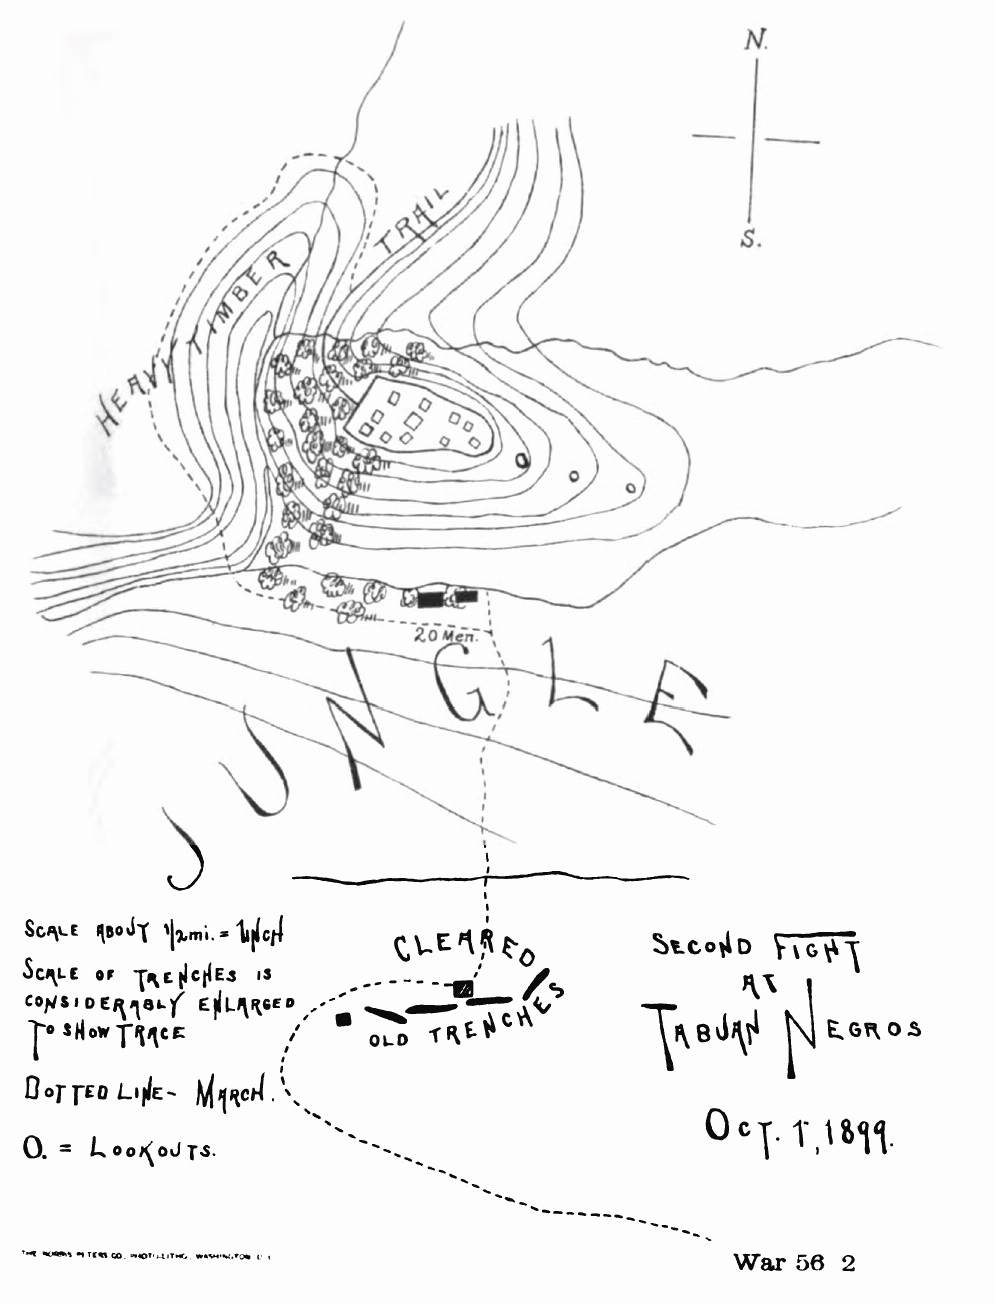 N.
S.
TRAIL
HEAVY TIMBER
20 Men.
JUNGLE
SCALE ABOUT 1/2 mi. = 1 INCH
SCALE OF TRENCHES IS
CONSIDERABLY ENLARGED
TO SHOW TRACE
DOTTED LINE- MARCH.
O. = LOOKOUTS.
CLEARED
OLD TRENCHES
SECOND FIGHT
AT
TABUAN NEGROS
OCT. 1, 1899.
THE NORRIS PETERS CO., PHOTO-LITHO., WASHINGTON, D. C.
War 56 2